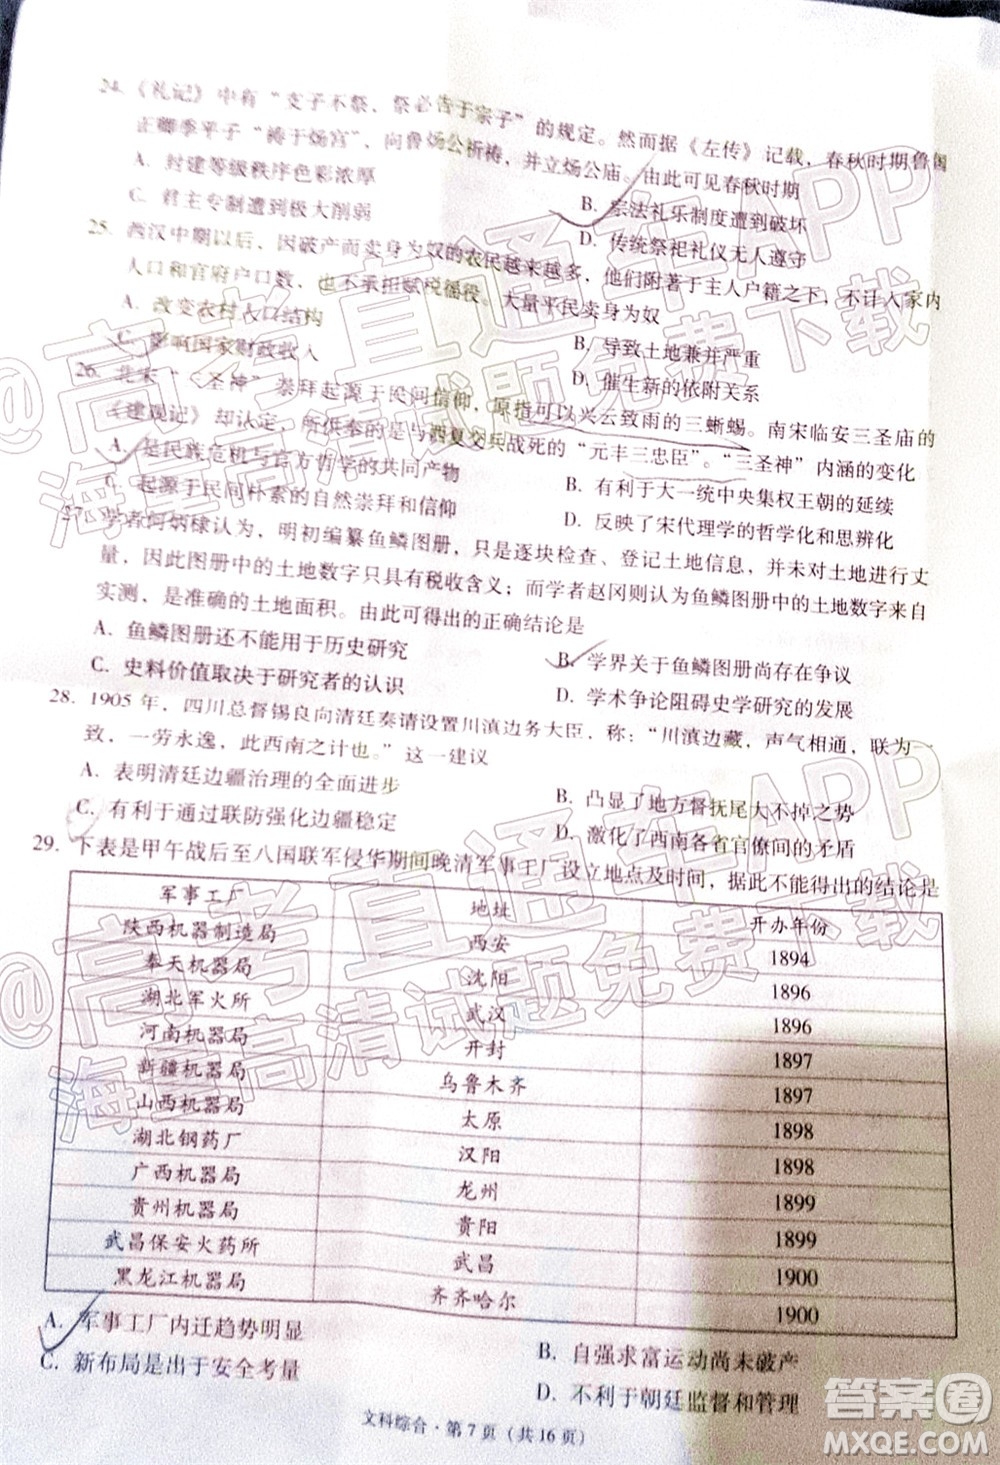 24. 《礼记》中有“支子不祭，祭必告于宗子”的规定。然而据《左传》记载，春秋时期鲁国
正卿季平子“祷于炀宫”，向鲁炀公祈祷，并立炀公庙。由此可见春秋时期
A. 封建等级秩序色彩浓厚
B. 宗法礼乐制度遭到破坏
C. 君主专制遭到极大削弱
D. 传统祭祀礼仪无人遵守
25. 西汉中期以后，因破产而卖身为奴的农民越来越多，他们附着于主人户籍之下，不计入家内
人口和官府户口数，不承担赋税徭役。大量平民卖身为奴
A. 改变农村人口结构
B. 导致土地兼并严重
C. 影响国家财政收入
D. 催生新的依附关系
26. 北宋“三圣神”崇拜起源于民间信仰，原指可以兴云致雨的三蜥蜴。南宋临安三圣庙的
《建观记》却认定，所供奉的是与西夏交兵战死的“元丰三忠臣”。“三圣神”内涵的变化
A. 是民族危机与官方哲学的共同产物
B. 有利于大一统中央集权王朝的延续
C. 起源于民间朴素的自然崇拜和信仰
D. 反映了宋代理学的哲学化和思辨化
27. 学者何炳棣认为，明初编纂鱼鳞图册，只是逐块检查、登记土地信息，并未对土地进行丈
量，因此图册中的土地数字只具有税收含义；而学者赵冈则认为鱼鳞图册中的土地数字来自
实测，是准确的土地面积。由此可得出的正确结论是
A. 鱼鳞图册还不能用于历史研究
B. 学界关于鱼鳞图册尚存在争议
C. 史料价值取决于研究者的认识
D. 学术争论阻碍史学研究的发展
28. 1905 年，四川总督锡良向清廷奏请设置川滇边务大臣，称：“川滇边藏，声气相通，联为一
致，一劳永逸，此西南之计也。”这一建议
A. 表明清廷边疆治理的全面进步
B. 凸显了地方督抚尾大不掉之势
C. 有利于通过联防强化边疆稳定
D. 激化了西南各省官僚间的矛盾
29. 下表是甲午战后至八国联军侵华期间晚清军事工厂设立地点及时间，据此不能得出的结论是
军事工厂 地址 开办年份
陕西机器制造局 西安 1894
奉天机器局 沈阳 1896
湖北军火所 武汉 1896
河南机器局 开封 1897
新疆机器局 乌鲁木齐 1897
山西机器局 太原 1898
湖北钢药厂 汉阳 1898
广西机器局 龙州 1899
贵州机器局 贵阳 1899
武昌保安火药所 武昌 1900
黑龙江机器局 齐齐哈尔 1900
A. 军事工厂内迁趋势明显
B. 自强求富运动尚未破产
C. 新布局是出于安全考量
D. 不利于朝廷监督和管理
文科综合·第 7 页（共 16 页）
@高考直通车APP
海量高清试题免费下载
@高考直通车APP
海量高清试题免费下载
答案圈
MXQE.COM